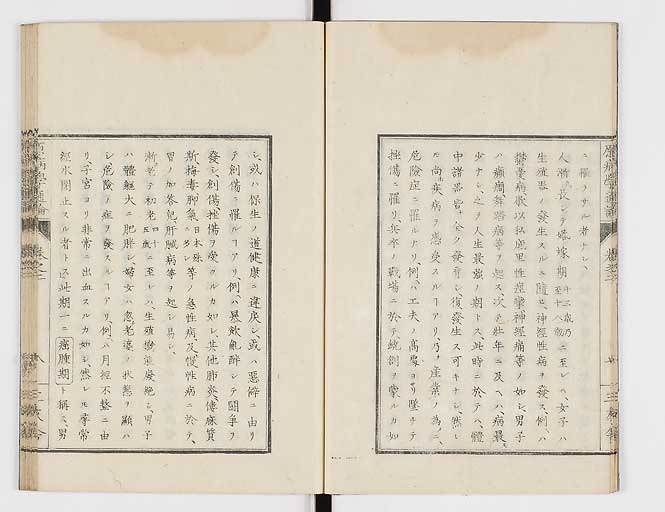 ニ罹ラサル者ナシ、
人漸ク長シテ婚嫁期 十二歳乃至十八歳 ニ至レハ、女子ハ
生殖器ノ發生スルニ隨ヒ、神經性病ヲ發ス、例ハ
鬱憂病歇以私的里性痙攣神經痛等ノ如シ、男子
ハ癲癇舞踏病等ヲ起ス、次テ壯年ニ及ヘハ病最
少ナシ、之ヲ人生最強ノ期トス、此時ニ於テハ、體
中諸器皆全ク發育シ復發生ス可キナシ、然レ
𪜈尚疾病ヲ感受スルヿアリ、乃チ産業ノ為ニ、
危險症ニ罹ルナリ、例ハ工夫ノ高屋ヨリ墜チテ
挫傷ニ罹リ、兵卒ノ戰場ニ於テ銃創ヲ蒙ルカ如
シ、或ハ保生ノ道健康ニ違戻シ或ハ惡癖ニ由リ
テ創傷ニ罹ルヿアリ、例ハ暴飲亂醉シテ鬪爭ヲ
發シ、創傷、挫傷ヲ受クルカ如シ、其他肺炎、僂麻質
斯、梅毒、脚氣 日本殊ニ多シ 等ノ急性病及慢性病ニ於テ、
胃ノ加答兒、肝臓病等ヲ起シ易シ、
漸ク老テ初老 四十五歳 ニ至レハ、生殖機能廢絶シ、男子
ハ體軀大ニ肥胖シ、婦女ハ忽老衰ノ状態ヲ顯ハ
シ危險ノ症ヲ發スルヿアリ、例ハ月經不整ニ由
リ、子宮ヨリ非常ニ出血スルカ如シ、然レ𪜈常
經水閉止スル者ト述此期一ニ 瘤腫期 ト稱シ、男
原病學通論
巻之二
八
三松舎